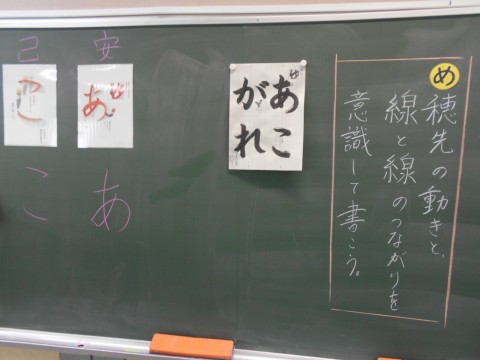 め
穂先の動きと、
線と線のつながりを
意識して書こう。
あこ
がれ
安
あ
あ
己
こ
こ